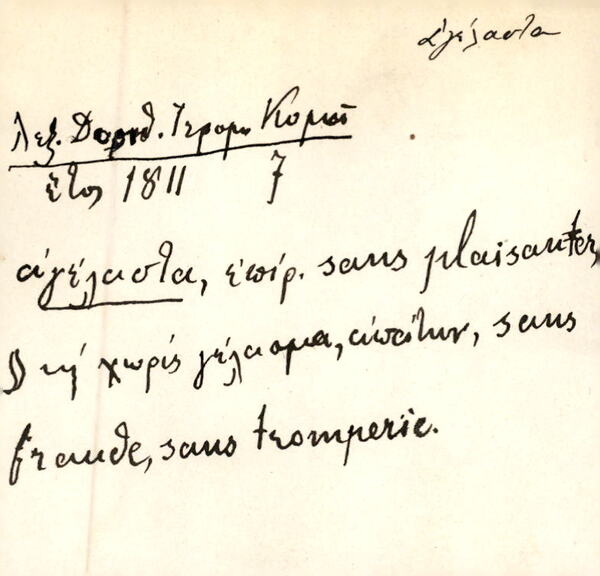 ἀγέλαστα
Λεξ. Δωροθ. Ἱερομ.
ἔτος 1811 7
ἀγέλαστα, ἐπίρ. sans plaisanter,
ἢ χωρίς γέλασμα, ἀπάτην, sans
fraude, sans tromperie.